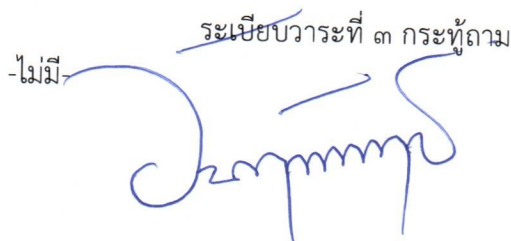 ระเบียบวาระที่ ๓ กระทู้ถาม
-ไม่มี-